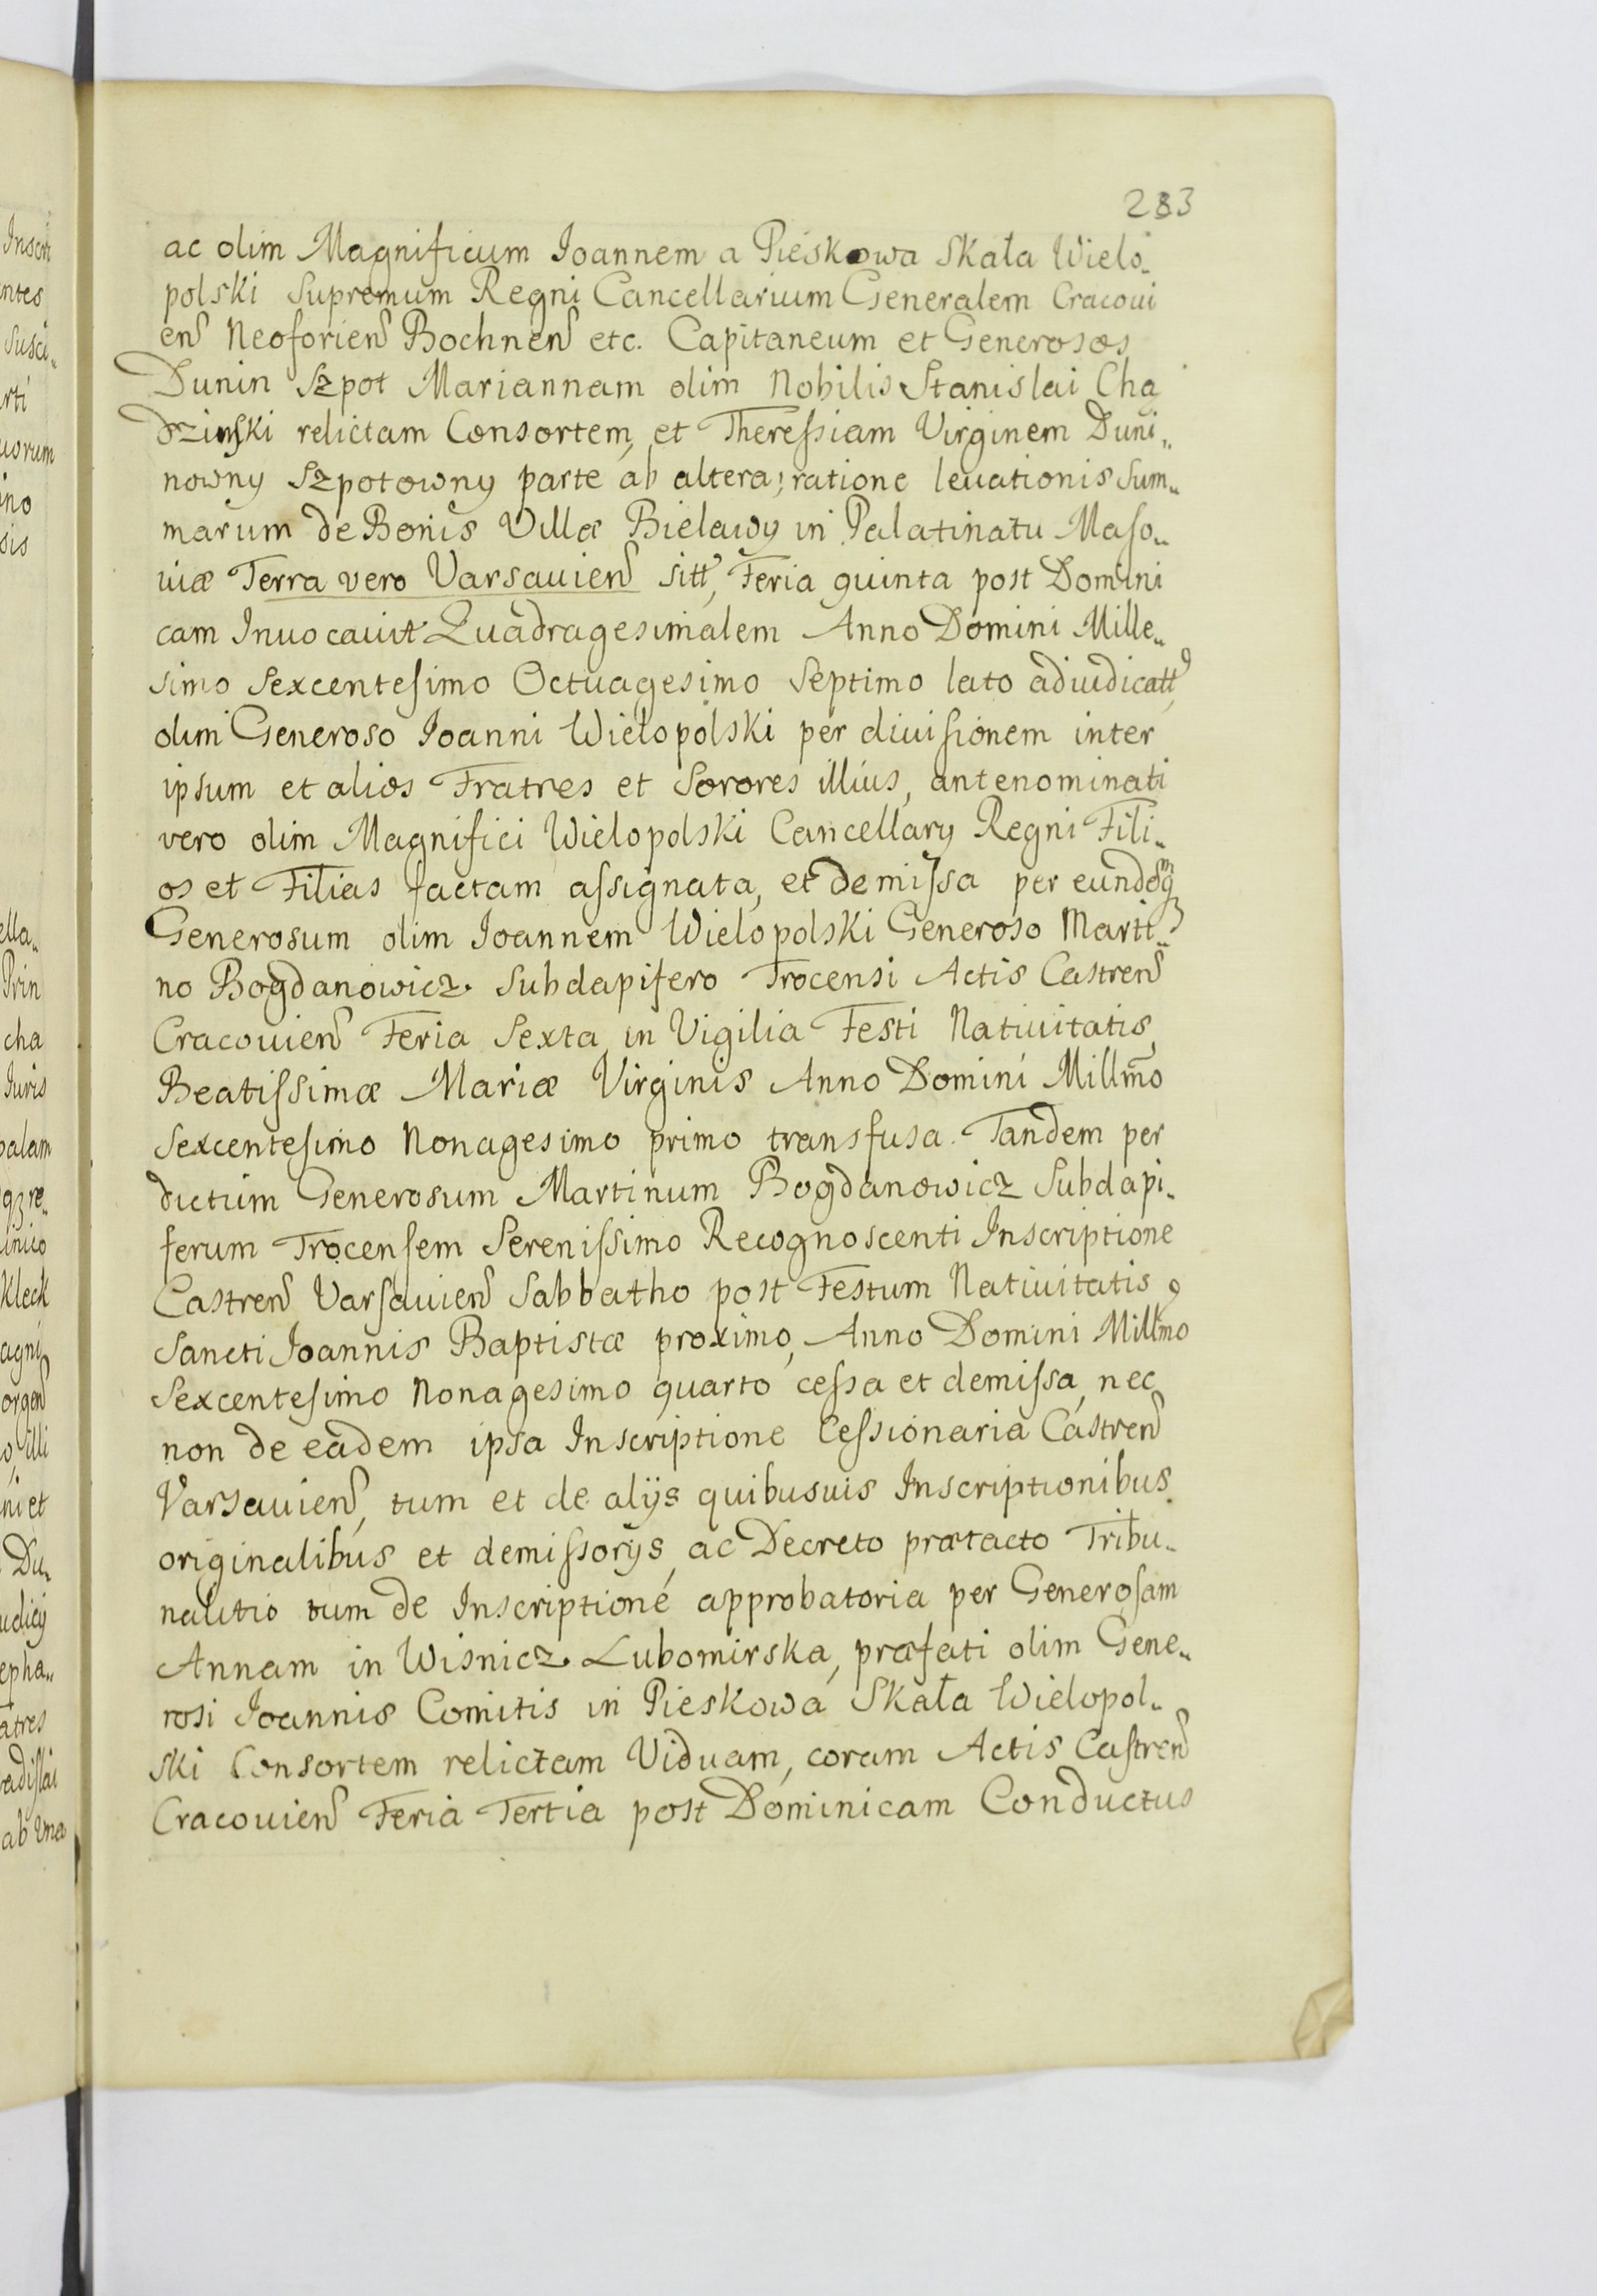 283
ac olim Magnificum Ioannem a Pieskowa Skała Wielo„
polski Supremum Regni Cancellarium Generalem Cracoui
en̄ Neoforien̄ Bochnen̄ etc. Capitaneum et Generosos
Dunin Szpot Mariannam olim Nobilis Stanislai Cha
dzinſki relictam Consortem, et Thereſsiam Virginem Duni„
nowny Szpotowny parte ab altera; ratione leuationis Sum„
marum de Bonis Villæ Bielawy in Palatinatu Maſo„
uiæ Terra vero Varsauien̄ sitt, Feria quinta post Domini
cam Inuocauit Quadragesimalem Anno Domini Mille„
simo Sexcenteſimo Octuagesimo Septimo lato adiudicatt,
olim Generoso Ioanni Wielopolski per diuiſionem inter
ipsum et alios Fratres et Sorores illius, antenominati
vero olim Magnifici Wielopolski Cancellary Regni Fili„
os et Filias factam aſsignata, et demiſsa per eundemq3
Generosum olim Ioannem Wielopolski Generoso Marti„
no Bogdanowicz Subdapifero Trocensi Actis Castren̄
Cracouien̄ Feria Sexta in Vigilia Festi Natiuitatis
Beatiſsimæ Mariæ Virginis Anno Domini Millm̄o
Sexcenteſimo Nonagesimo primo transfusa. Tandem per
dictum Generosum Martinum Bogdanowicz Subdapi„
ferum Trocenſem Sereniſsimo Recognoscenti Inscriptione
Castren̄ Varſauien̄ Sabbatho post Festum Natiuitatis
Sancti Ioannis Baptistæ proximo, Anno Domini Millmo
Sexcenteſimo Nonagesimo quarto ceſsa et demiſsa, nec
non de eadem ipsa Inscriptione Ceſsionaria Castren̄
Varsauien̄, tum et de alijs quibusuis Inscriptionibus
originalibus et demiſsorijs, ac Decreto prætacto Tribu„
nalitio tum de Inscriptione approbatoria per Generoſam
Annam in Wisnicz Lubomirska, præfati olim Gene„
rosi Ioannis Comitis in Pieskowa Skała Wielopol„
ski Consortem relictam Viduam, coram Actis Caſtren̄
Cracouien̄ Feria Tertia post Dominicam Conductus